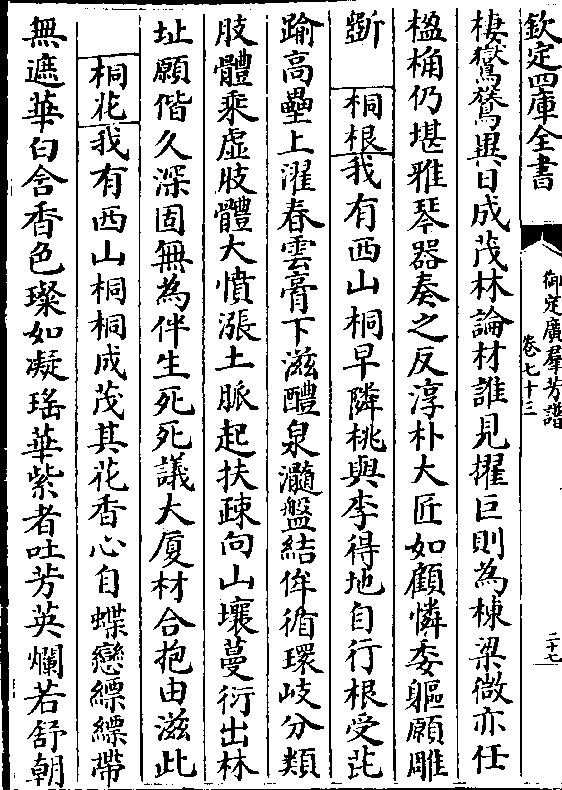 欽定四庫全書
御定廣羣芳譜
卷七十三
二十七
棲鸑鷟異日成茂林論材誰見擢巨則為棟梁微亦任
楹桷仍堪雅琴器奏之反淳朴大匠如顧憐委軀願雕
斵 桐根我有西山桐早隣桃與李得地自行根受芘
踰高壘上濯春雲膏下滋醴泉瀡盤結侔循環岐分類
肢體乘虛肢體大憤漲土脈起扶疎向山壤蔓衍出林
址願偕久深固無為伴生死死議大厦材合抱由滋此
桐花我有西山桐桐成茂其花香心自蝶戀縹縹帶
無遮華白含香色璨如凝瑤華紫者吐芳英爛若舒朝